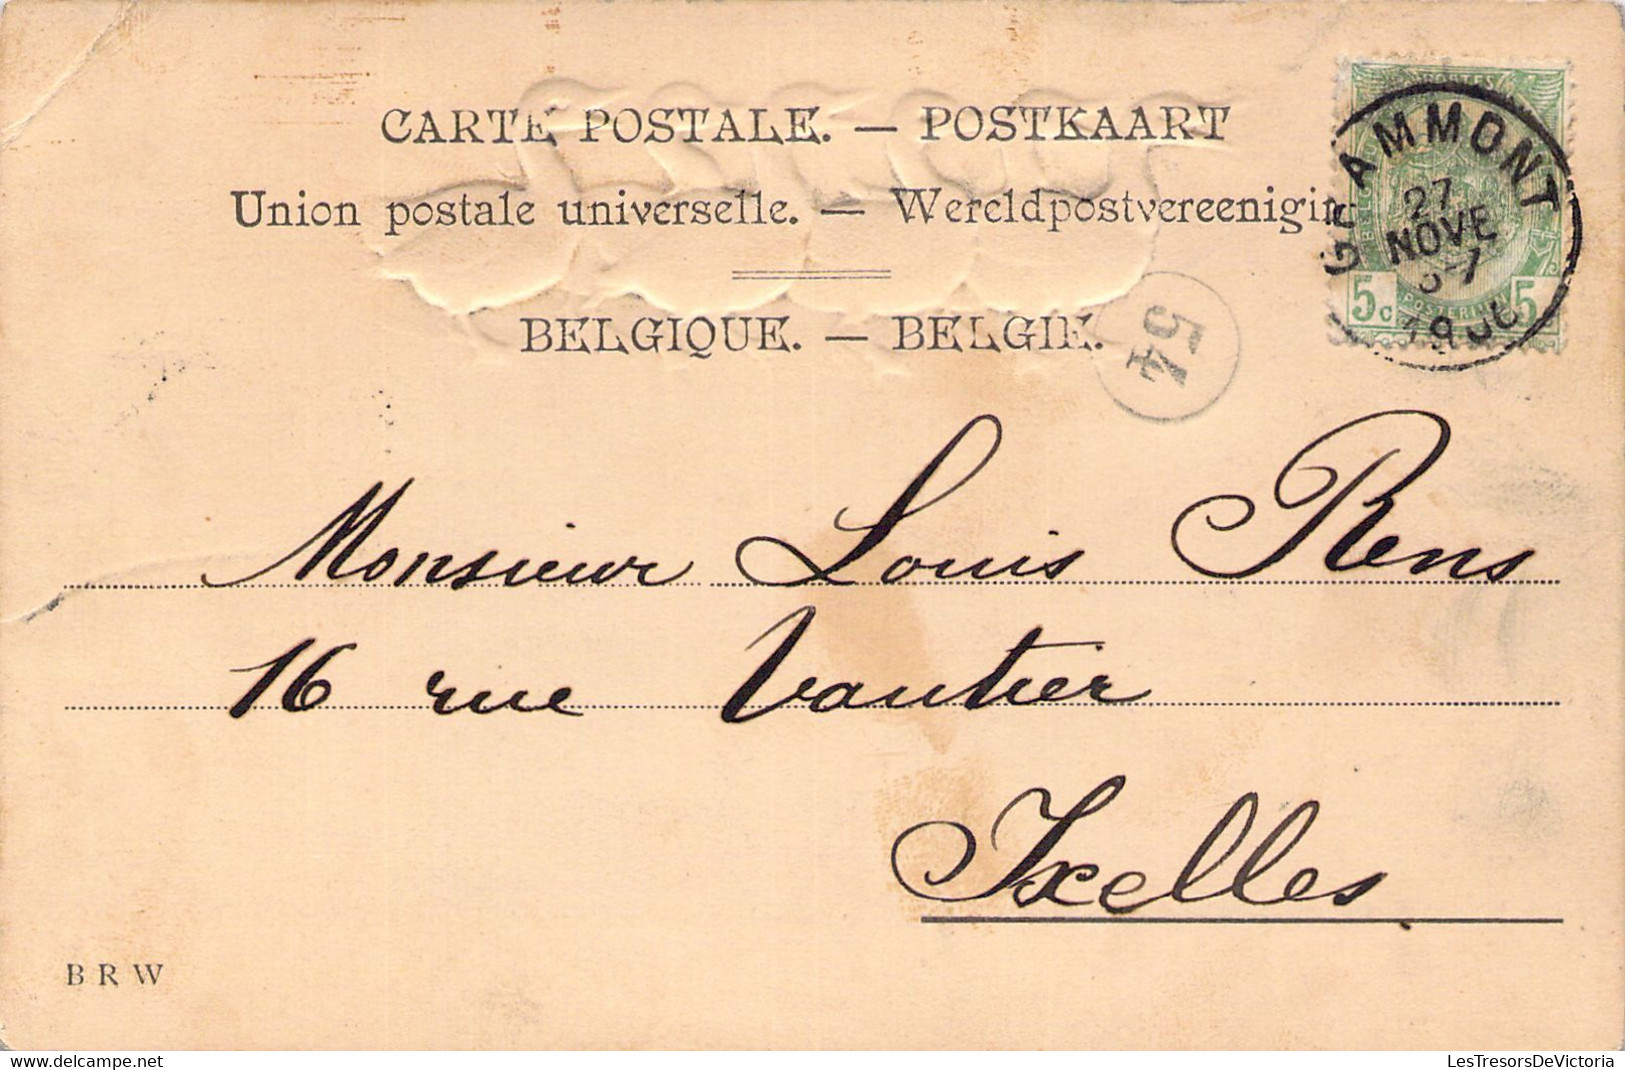 CARTE POSTALE. — POSTKAART
Union postale universelle. — Wereldpostvereeniging
BELGIQUE. — BELGIE.
GRAMMONT
27
NOVE
5 c
5
54
Monsieur Louis Rens
16 rue Vautier
Ixelles
B R W
LesTresorsDeVictoria